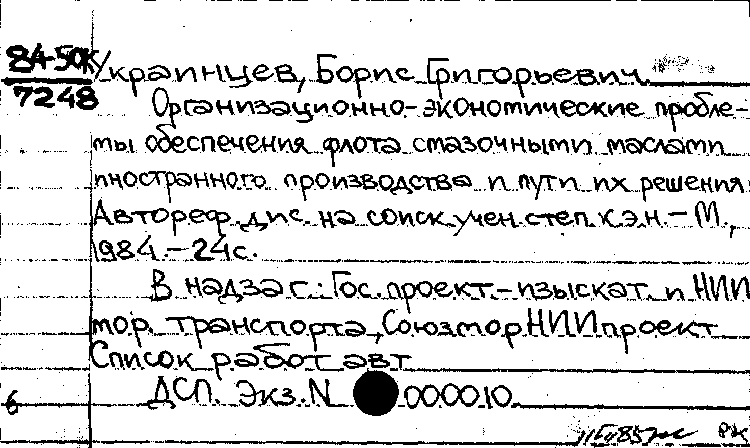 84-50К
7248
Украинцев, Борис Григорьевич.
Организационно-экономические пробле-
мы обеспечения флота смазочными маслами
иностранного производства и пути их решения
Автореф. дис. на соиск. учен. степ. к.э.н - М.,
1984. - 24с.
В надзаг.: Гос. проект.-изыскат. и НИИ
мор. транспорта, СоюзморНИИпроект
Список работ авт
ДСП. Экз. N 000010.
6